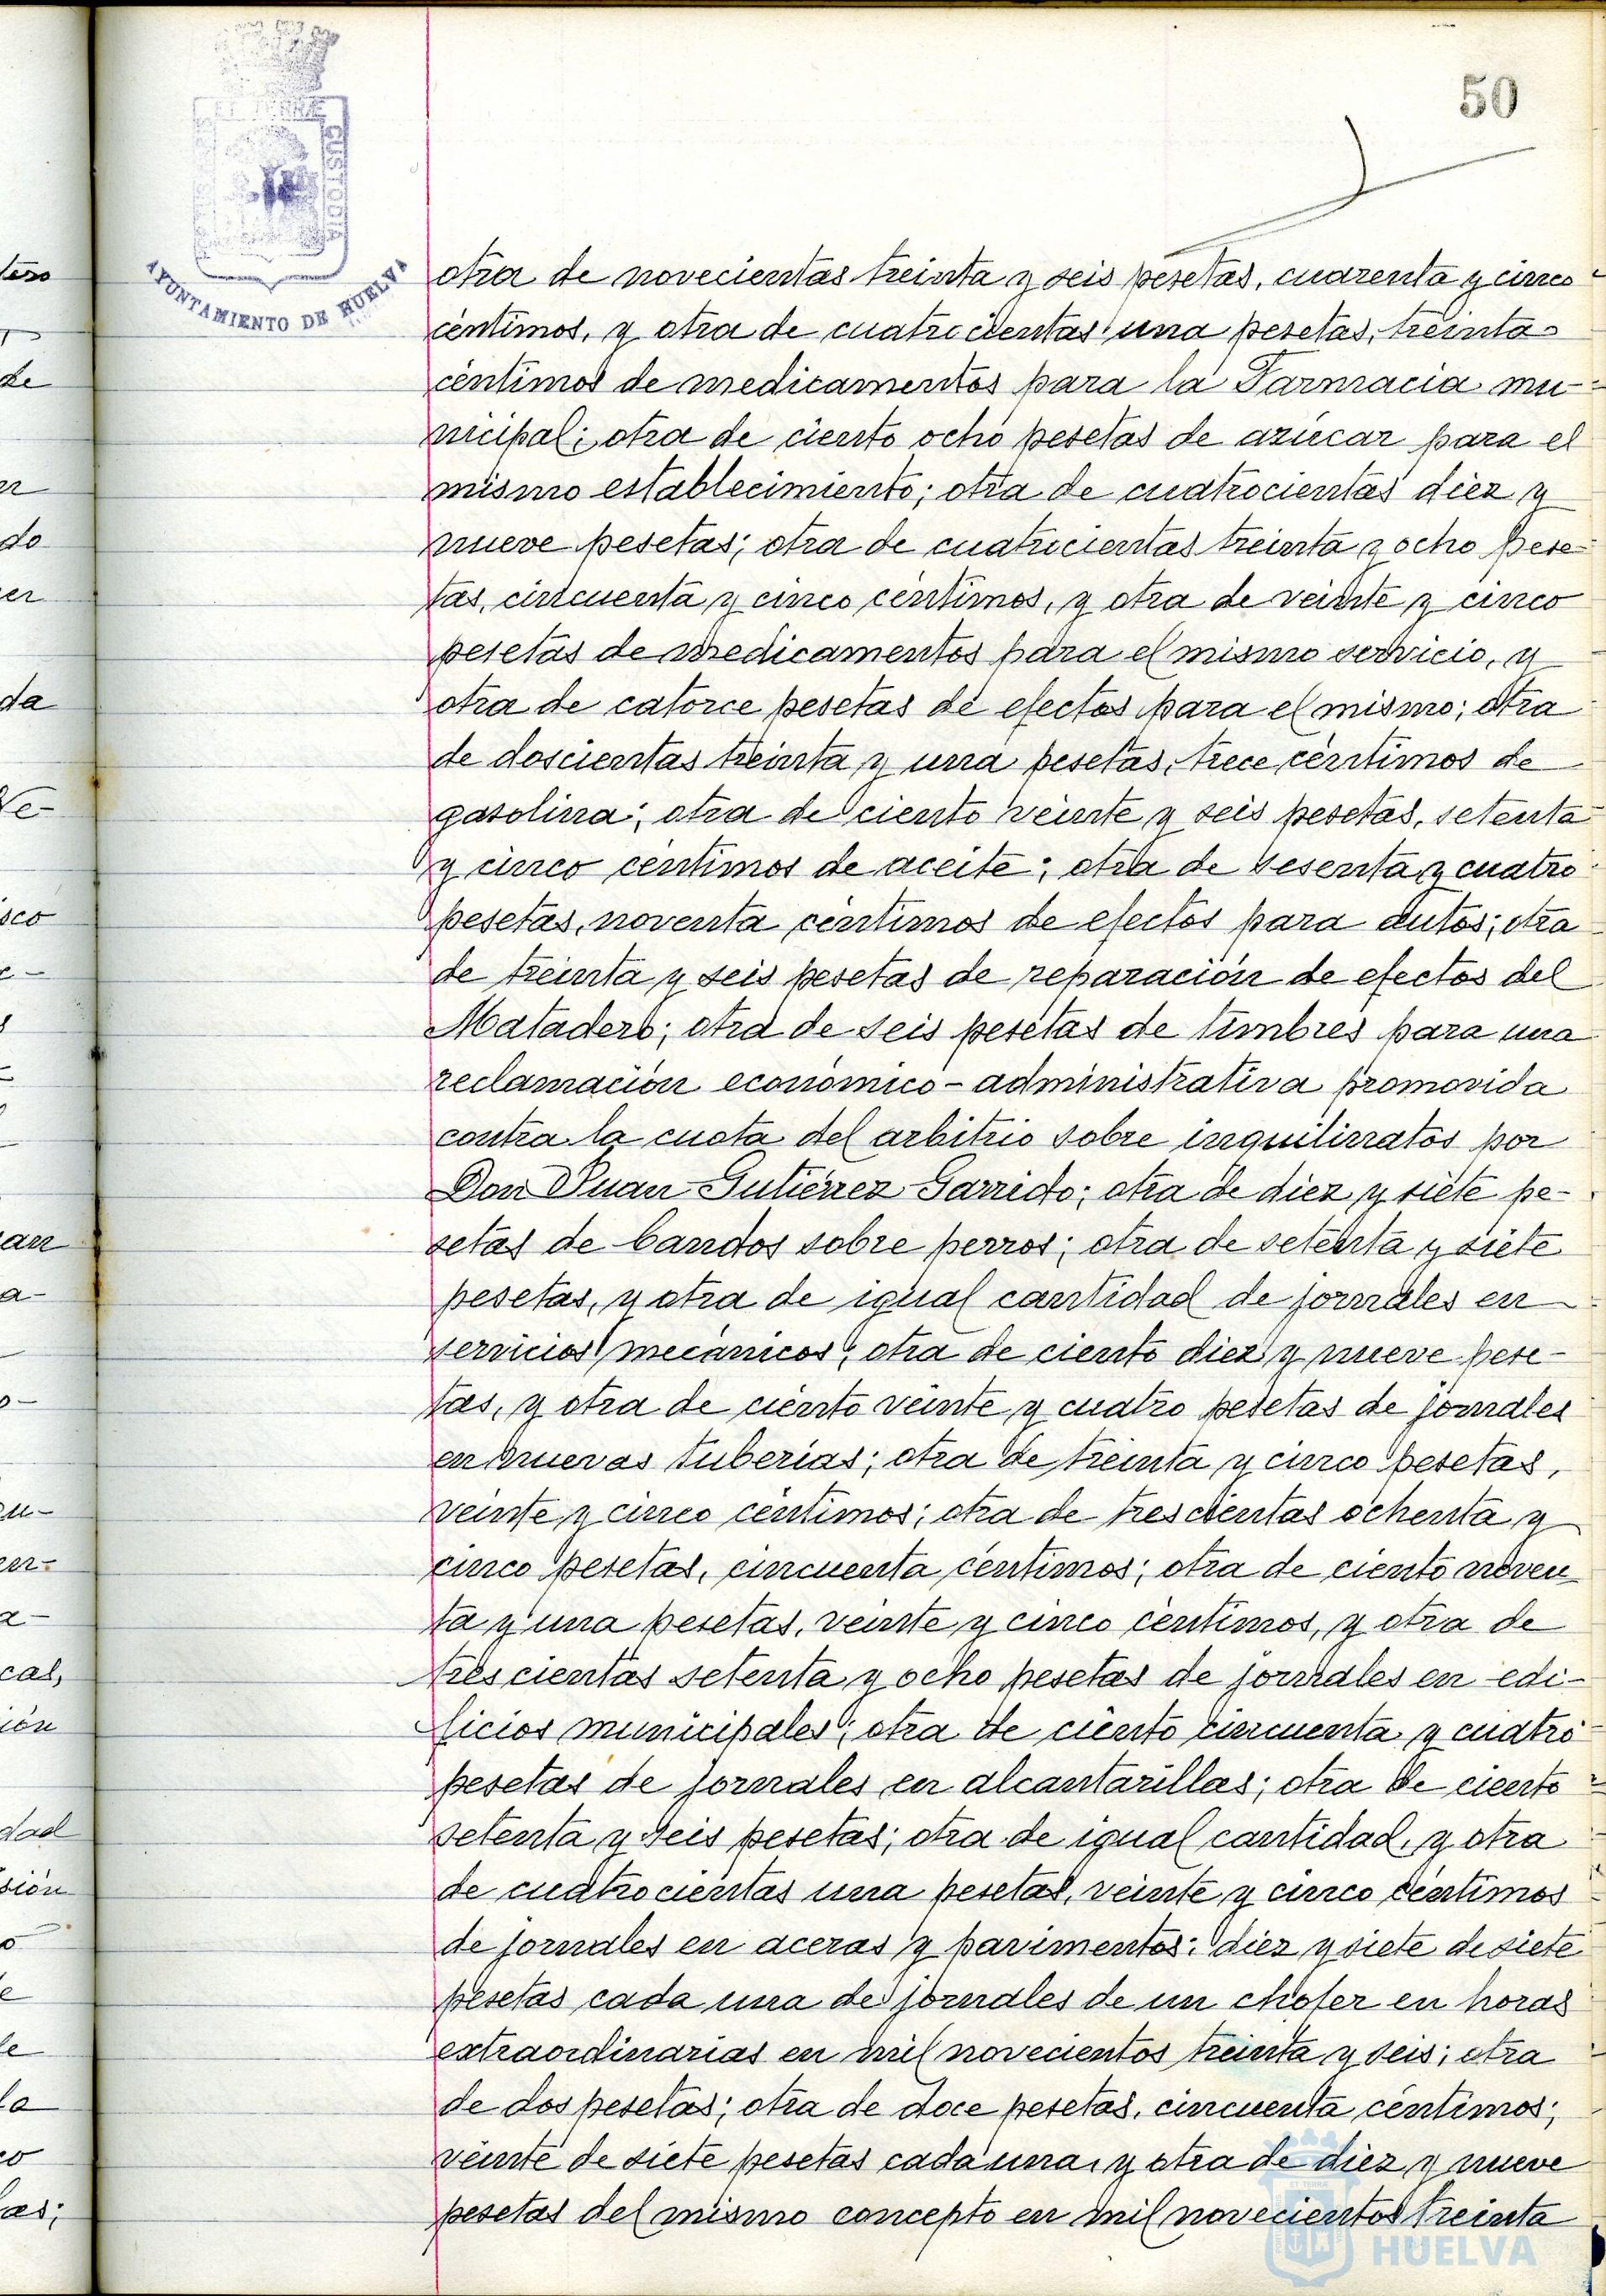 50
AYUNTAMIENTO DE HUELVA
CUSTODIA
otra de novecientas treinta y seis pesetas, cuarenta y cinco
céntimos, y otra de cuatrocientas una pesetas, treinta
céntimos de medicamentos para la Farmacia mu-
nicipal; otra de ciento ocho pesetas de azúcar para el
mismo establecimiento; otra de cuatrocientas diez y
nueve pesetas; otra de cuatrocientas treinta y ocho pese-
tas, cincuenta y cinco céntimos, y otra de veinte y cinco
pesetas de medicamentos para el mismo servicio, y
otra de catorce pesetas de efectos para el mismo; otra
de doscientas treinta y una pesetas, trece céntimos de
gasolina; otra de ciento veinte y seis pesetas, setenta
y cinco céntimos de aceite; otra de sesenta y cuatro
pesetas, noventa céntimos de efectos para autos; otra
de treinta y seis pesetas de reparación de efectos del
Matadero; otra de seis pesetas de timbres para una
reclamación económico-administrativa promovida
contra la cuota del arbitrio sobre inquilinatos por
Don Juan Gutiérrez Garrido; otra de diez y siete pe-
setas de bandos sobre perros; otra de setenta y siete
pesetas, y otra de igual cantidad de jornales en
servicios mecánicos; otra de ciento diez y nueve pese-
tas, y otra de ciento veinte y cuatro pesetas de jornales
en nuevas tuberías; otra de treinta y cinco pesetas,
veinte y cinco céntimos; otra de trescientas ochenta y
cinco pesetas, cincuenta céntimos; otra de ciento noven
ta y una pesetas, veinte y cinco céntimos, y otra de
trescientas setenta y ocho pesetas de jornales en edi-
ficios municipales; otra de ciento cincuenta y cuatro
pesetas de jornales en alcantarillas; otra de ciento
setenta y seis pesetas; otra de igual cantidad, y otra
de cuatrocientas una pesetas, veinte y cinco céntimos
de jornales en aceras y pavimentos; diez y siete de siete
pesetas cada una de jornales de un chofer en horas
extraordinarias en mil novecientos treinta y seis; otra
de dos pesetas; otra de doce pesetas, cincuenta céntimos;
veinte de siete pesetas cada una, y otra de diez y nueve
pesetas del mismo concepto en mil novecientos treinta
HUELVA